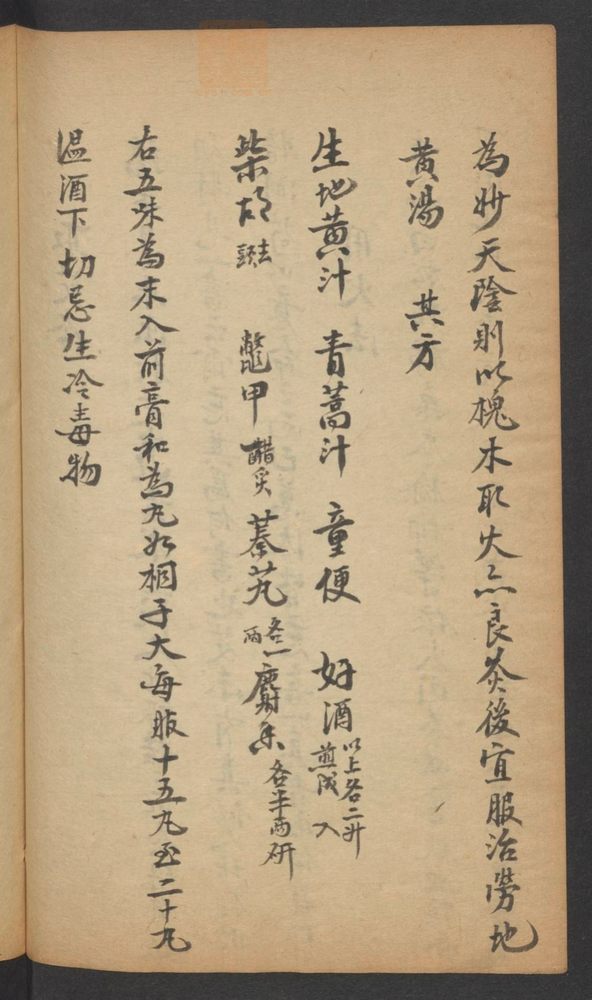 為妙天陰則以槐木取火亦良灸後宜服治勞地
黄湯　其方
生地黄汁　青蒿汁　童便　好酒以上各二升煎成入
柴胡去頭　鱉甲醋炙　蓁艽各一兩　麝香各半兩研
右五味為末入前膏和為丸如梧子大每服十五丸至二十丸
温酒下切忌生冷毒物